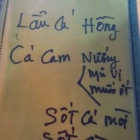 Lẩu Cá Hồng
Cá Cam Nướng
Mù Vị
muối ớt
Sốt Cà mới
Sốt